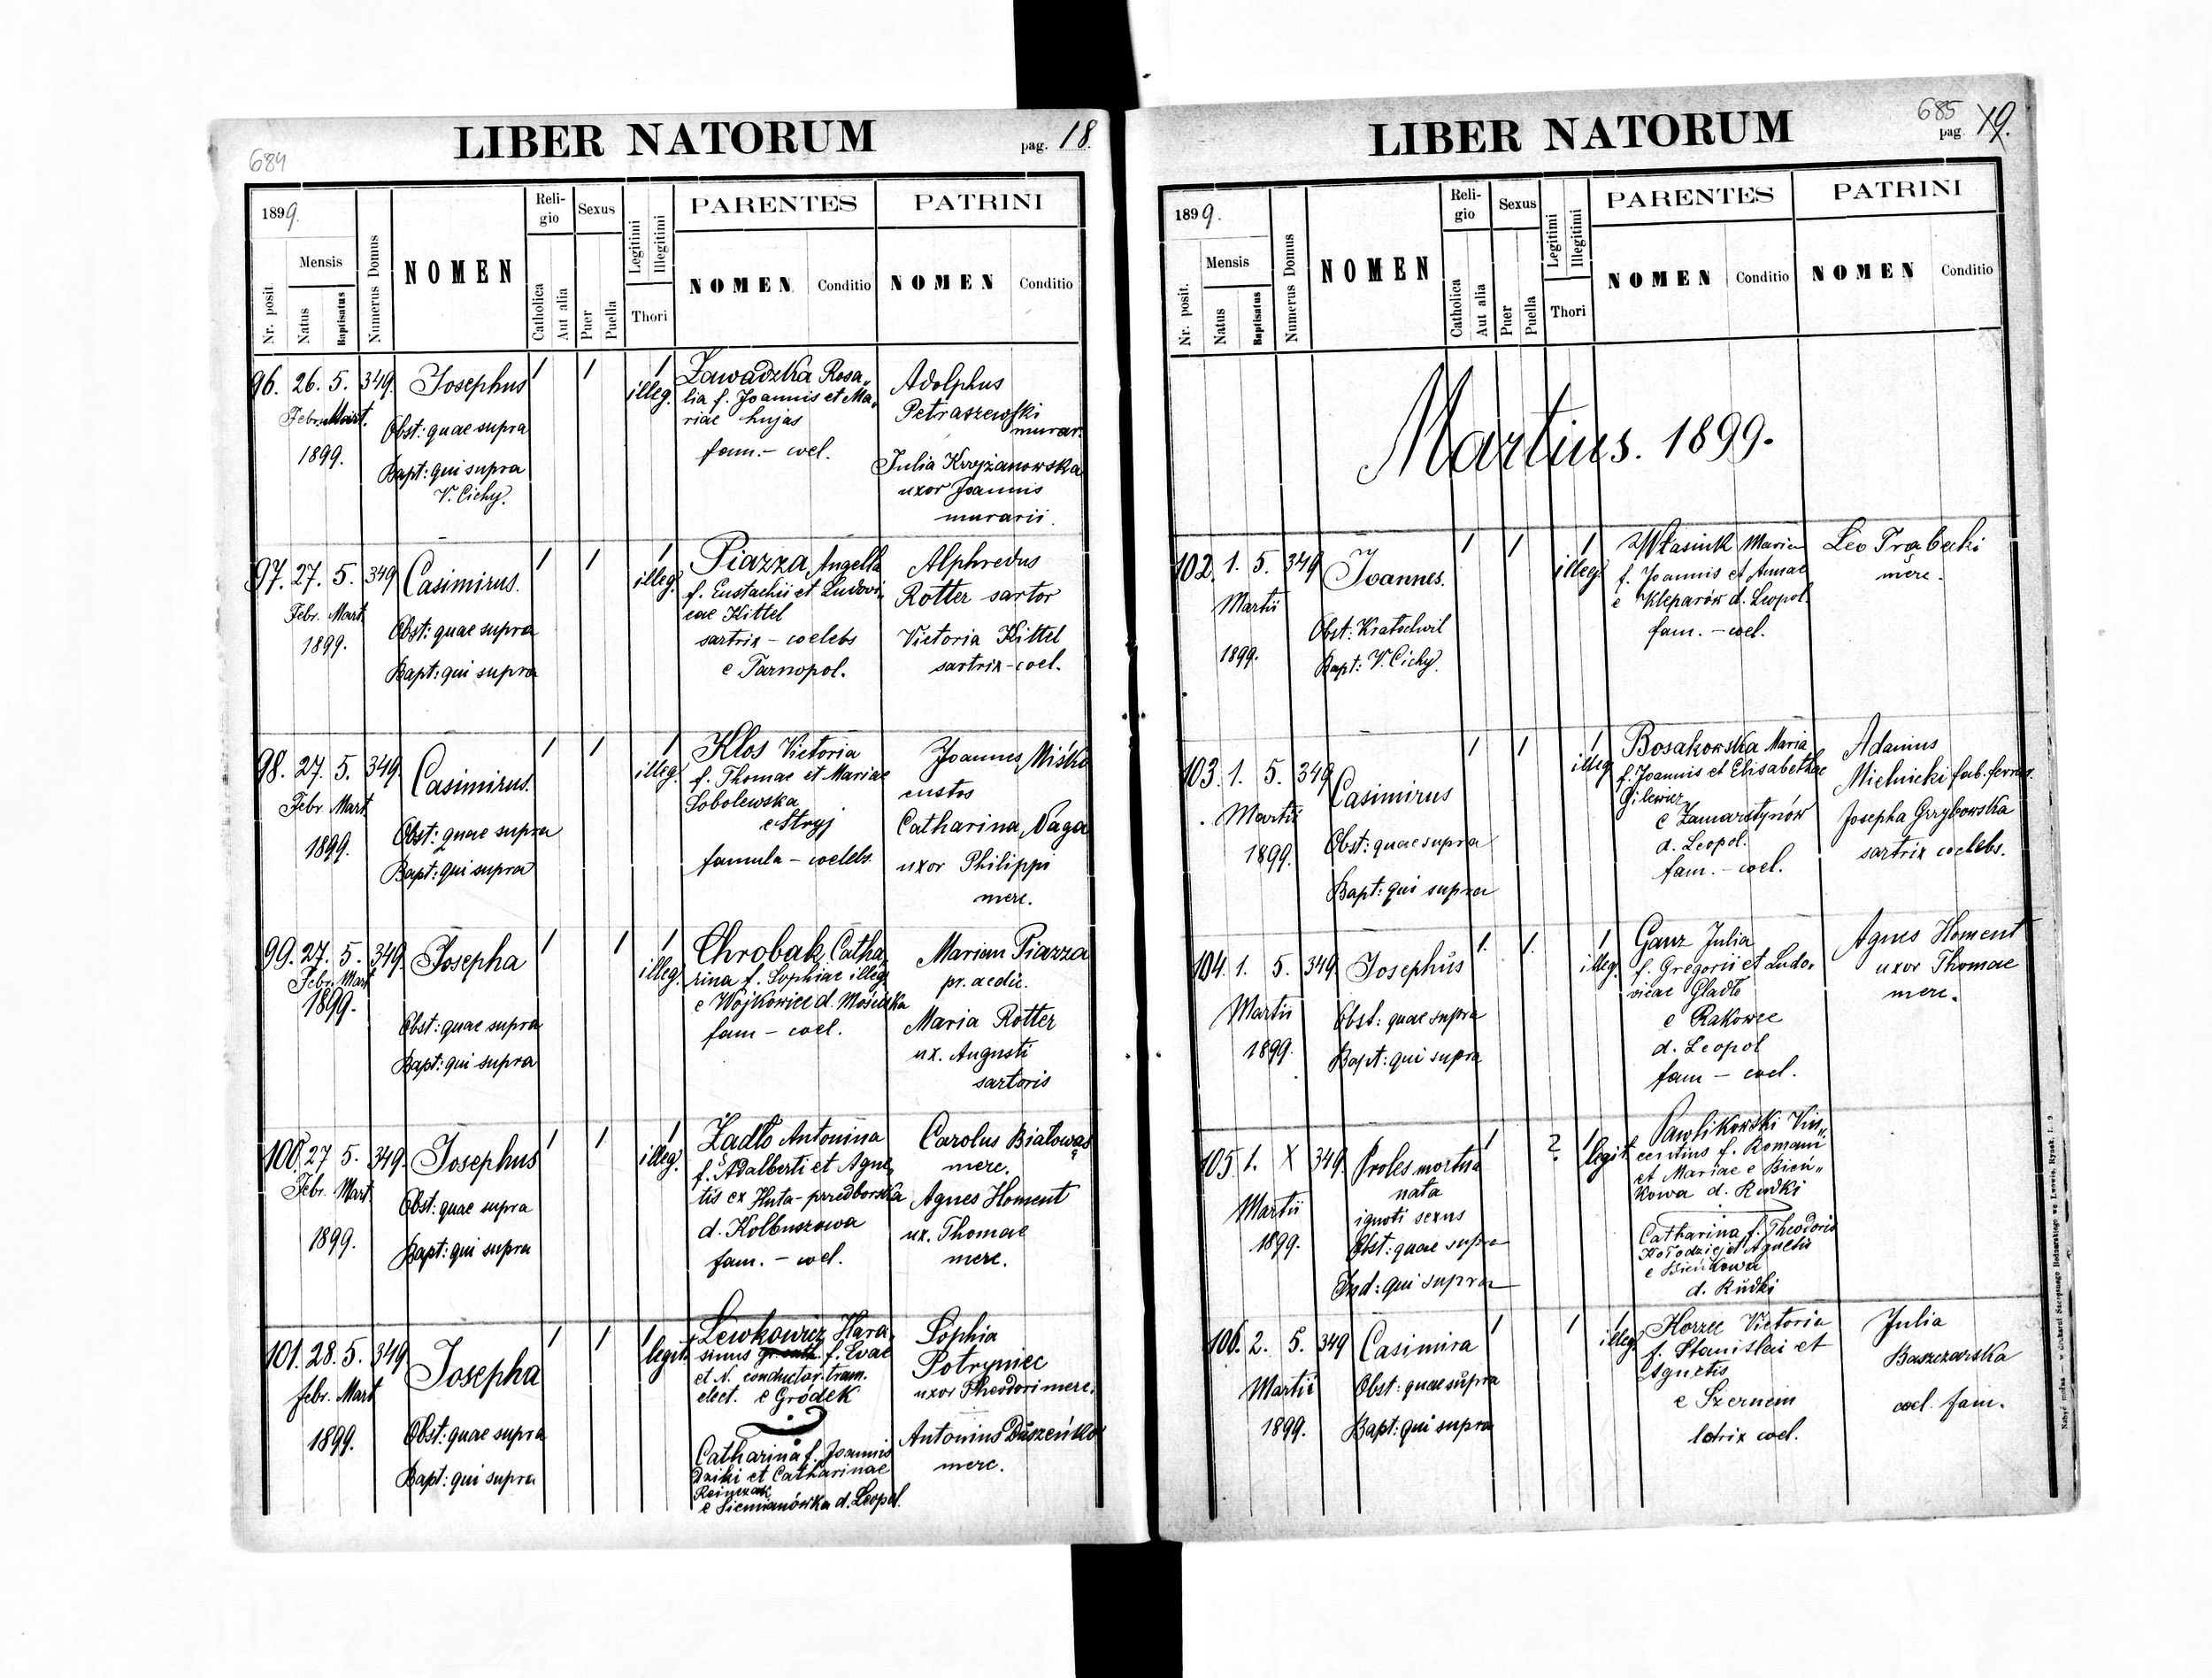 684
LIBER NATORUM
pag. 18.
1899.
Nr. posit.
Mensis
Natus
Baptisatus
Numerus Domus
NOMEN
Religio
Catholica
Aut alia
Sexus
Puer
Puella
Legitimi
Illegitimi
Thori
PARENTES
NOMEN
Conditio
PATRINI
NOMEN
Conditio
96. 26. 5. 349. Josephus / / /
Febr. Mart.
1899.
Obst: quae supra
Bapt: qui supra
V. Cichy.
illeg.
Zawadzka Rosa„
lia f. Joannis et Ma„
riae hujas
fam. - coel.
Adolphus
Petraszewski
murar.
Julia Krzyżanowska
uxor Joannis
murarii.
97. 27. 5. 349 Casimirus. / / /
Febr. Mart
1899.
Obst: quae supra
Bapt: qui supra
illeg.
Piazza Angella
f. Eustachii et Ludovi„
cae Kittel
sartrix - coelebs
e Tarnopol.
Alphredus
Rotter sartor
Victoria Kittel
sartrix - coel.
98. 27. 5. 349. Casimirus. / / /
Febr. Mart
1899.
Obst: quae supra
Bapt: qui supra
illeg.
Klos Victoria
f. Thomae et Mariae
Sobolewska
e Stryj
famula - coelebs.
Joannes Miśko
custos
Catharina Naga
uxor Philippi
merc.
99. 27. 5. 349. Josepha / / /
Febr. Mart
1899.
Obst: quae supra
Bapt: qui supra
illeg.
Chrobak Catha„
rina f. Sophiae illeg.
e Wojkowice d. Mościska
fam - coel.
Marian Piazza
pr. aedic.
Maria Rotter
ux. Augusti
sartoris
100. 27 5. 349. Josephus / / /
Febr. Mart.
1899.
Obst: quae supra
Bapt: qui supra
illeg.
Żadło Antonina
f. Adalberti et Agne„
tis ex Huta-przedborska
d. Kolbuszowa
fam. - coel.
Carolus Białowąs
merc.
Agnes Homent
ux. Thomae
merc.
101. 28. 5. 349 Josepha / / /
febr. Mart
1899.
Obst: quae supra
Bapt: qui supra
legit.
Lewkowicz Hara„
simus f. Evae
et N. conductor tram.
elect. e Gródek
Catharina f. Joannis
Daiki et Catharinae
e Siemianówka d. Leopol.
Sophia
Potryniec
uxor Theodori merc.
Antonius Duszeńko
merc.
685
LIBER NATORUM
pag 19.
1899.
Nr. posit.
Mensis
Natus
Baptisatus
Numerus Domus
NOMEN
Religio
Catholica
Aut alia
Sexus
Puer
Puella
Legitimi
Illegitimi
Thori
PARENTES
NOMEN
Conditio
PATRINI
NOMEN
Conditio
Martius. 1899.
102. 1. 5. 349 Joannes. / / /
Martii
1899.
Obst: Kratochwil
Bapt: V. Cichy.
illeg.
Własiuk Maria
f. Joannis et Annae
e Kleparów d. Leopol.
fam. - coel.
Leo Trąbecki
merc.
103. 1. 5. 349 Casimirus / / /
Martii
1899.
Obst: quae supra
Bapt: qui supra
illeg
Bosakowska Maria
f. Joannis et Elisabethae
Gilewicz
e Zamarstynów
d. Leopol.
fam. - coel.
Adamus
Mielnicki fab. ferrar.
Josepha Grzybowska
sartrix coelebs.
104. 1. 5. 349. Josephus / / /
Martii
1899.
Obst: quae supra
Bapt: qui supra
illeg.
Ganz Julia
f. Gregorii et Ludo„
vicae Gladło
e Rakowce
d. Leopol
fam - coel.
Agnes Homent
uxor Thomae
merc.
105. 1. X 349. Proles mortua / ? /
nata
ignoti sexus
Martii
1899.
Obst: quae supra
Ind: qui supra
legit.
Pawlikowski Vin„
centius f. Romani
et Mariae e Bień„
kowa d. Rudki
Catharina f. Theodori
Kołodziej et Agnetis
e Bieńkowa
d. Rudki
106. 2. 5. 349 Casimira / / /
Martii
1899.
Obst: quae supra
Bapt: qui supra
illeg.
Horzec Victoria
f. Stanislai et
Agnetis
e Szernein
lotrix coel.
Julia
Baszczarska
coel. fam.